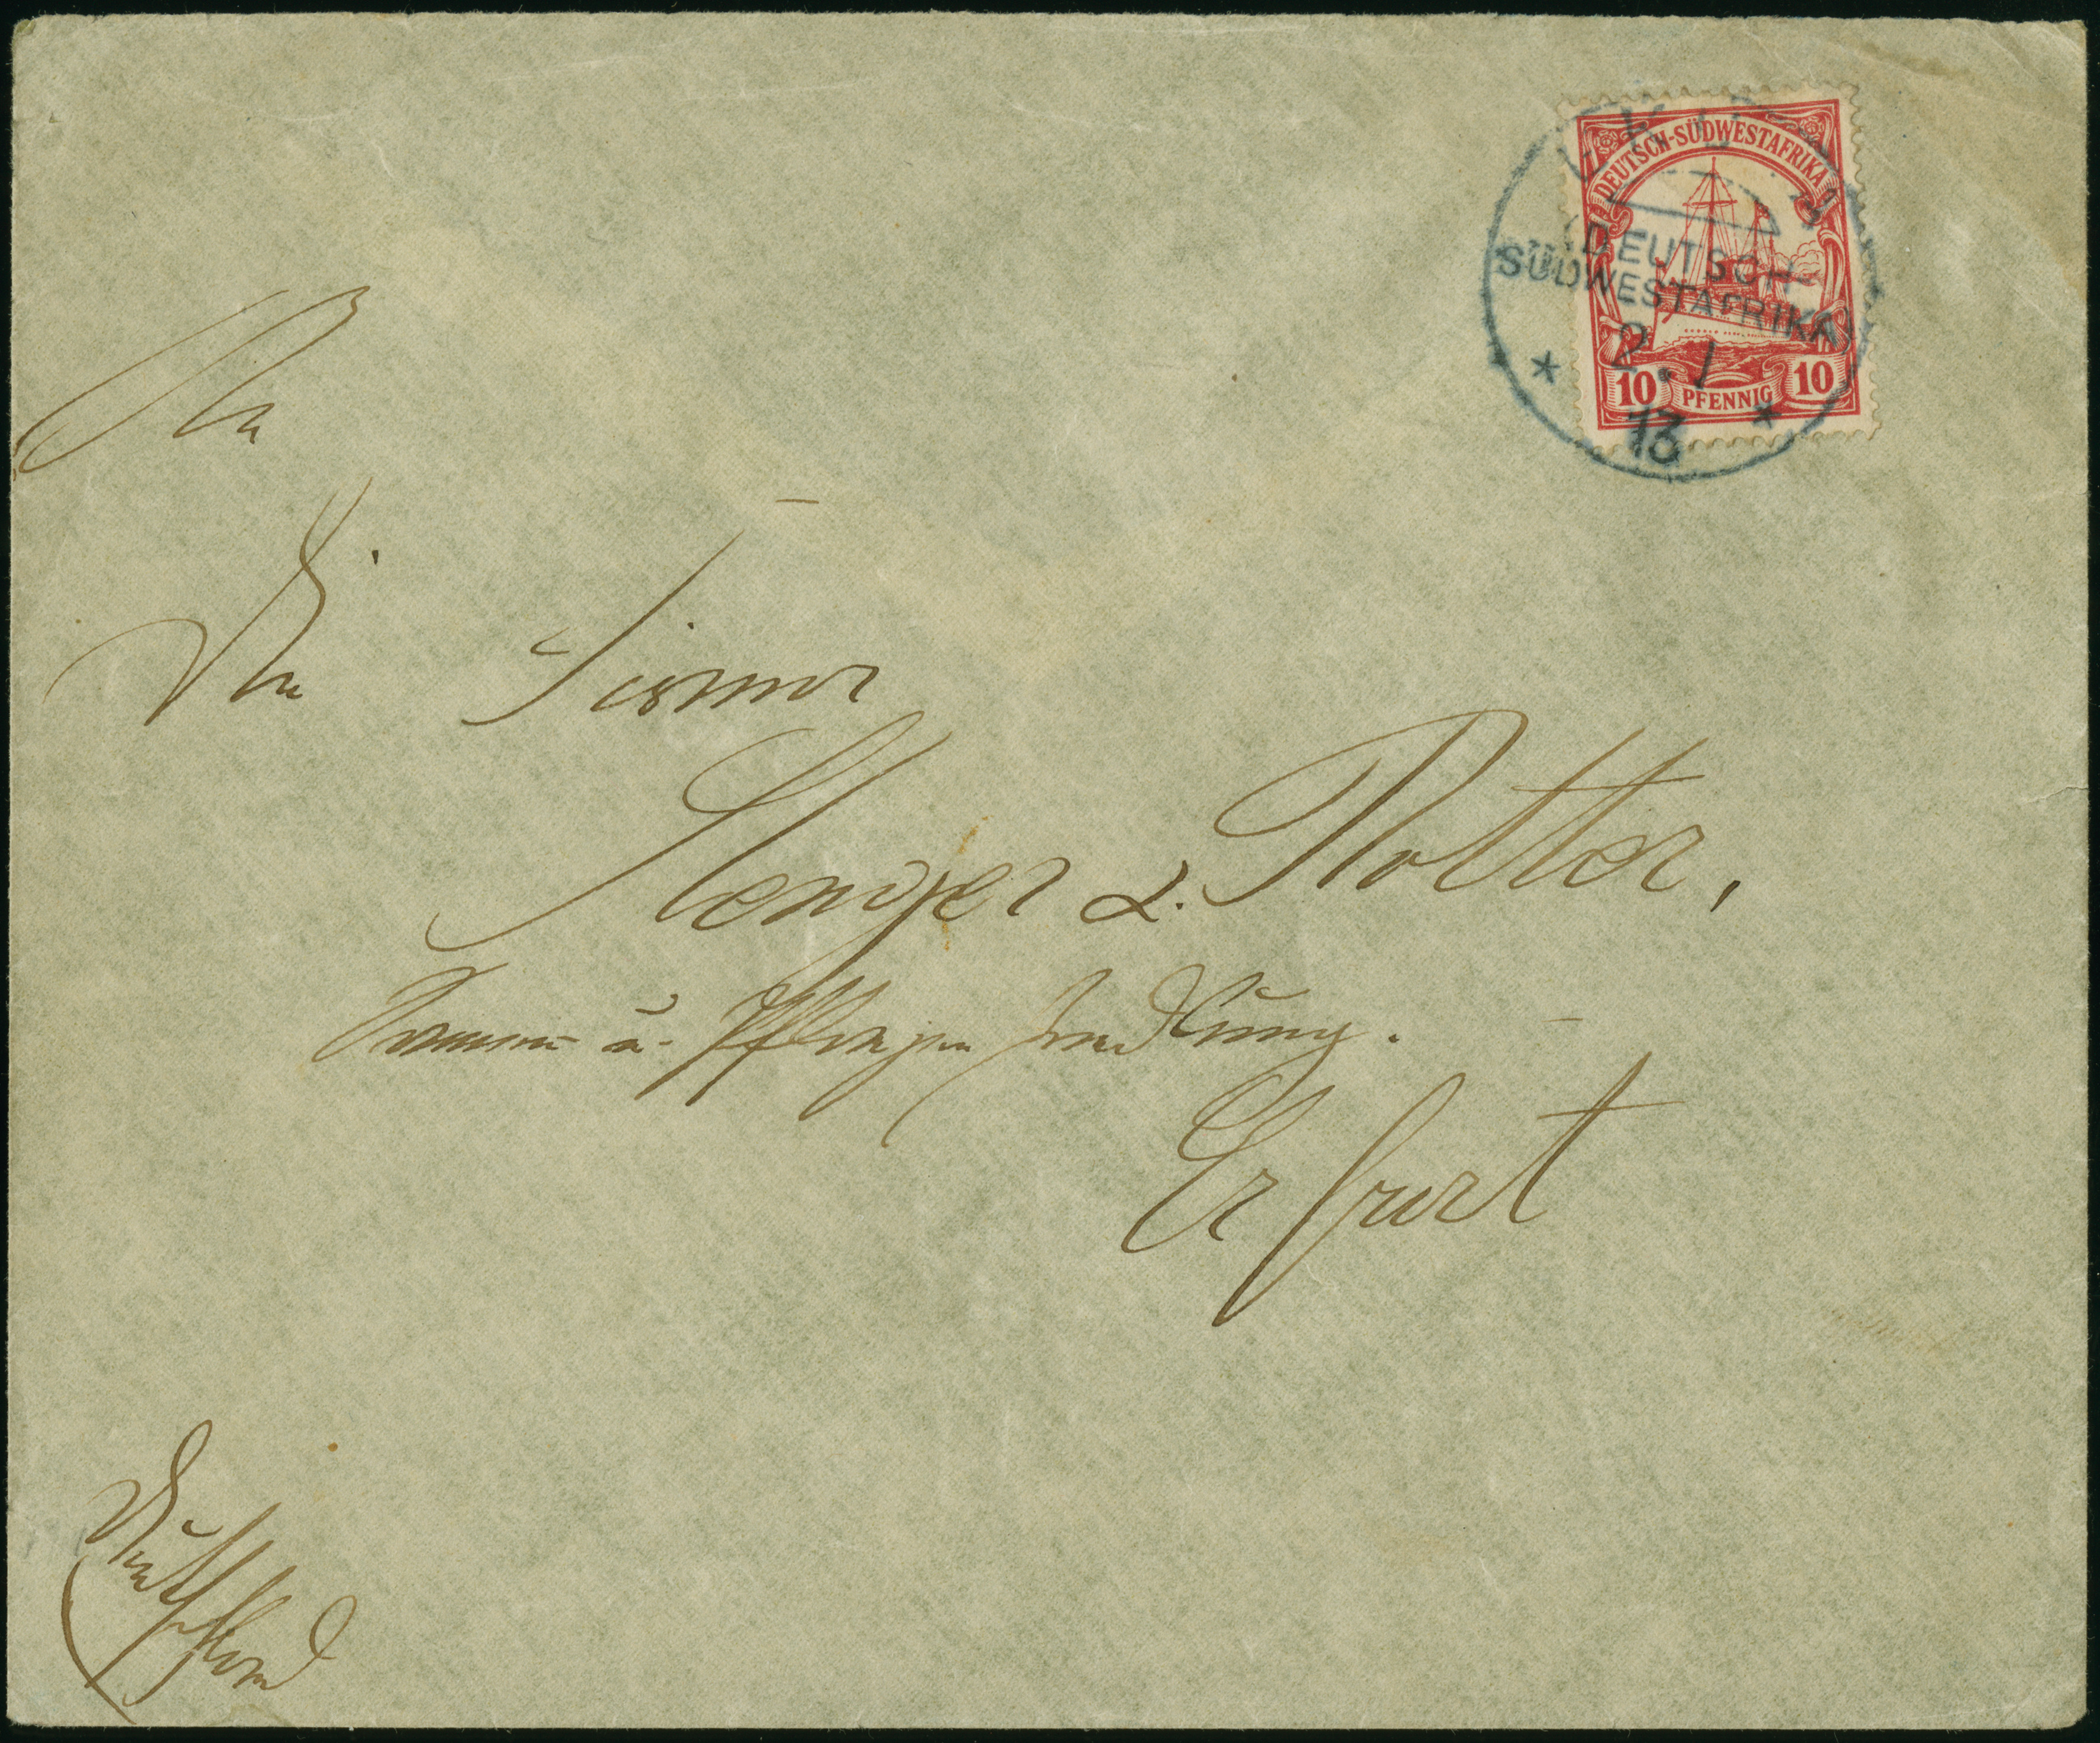 DEUTSCH-SÜDWESTAFRIKA
10 PFENNIG 10
(DEUTSCH-
SÜDWESTAFRIKA)
* 2.1 *
13
An
Die Firma
Stenger & Rotter,
Samen u. Pflanzen Handlung.
Erfurt
Deutschland